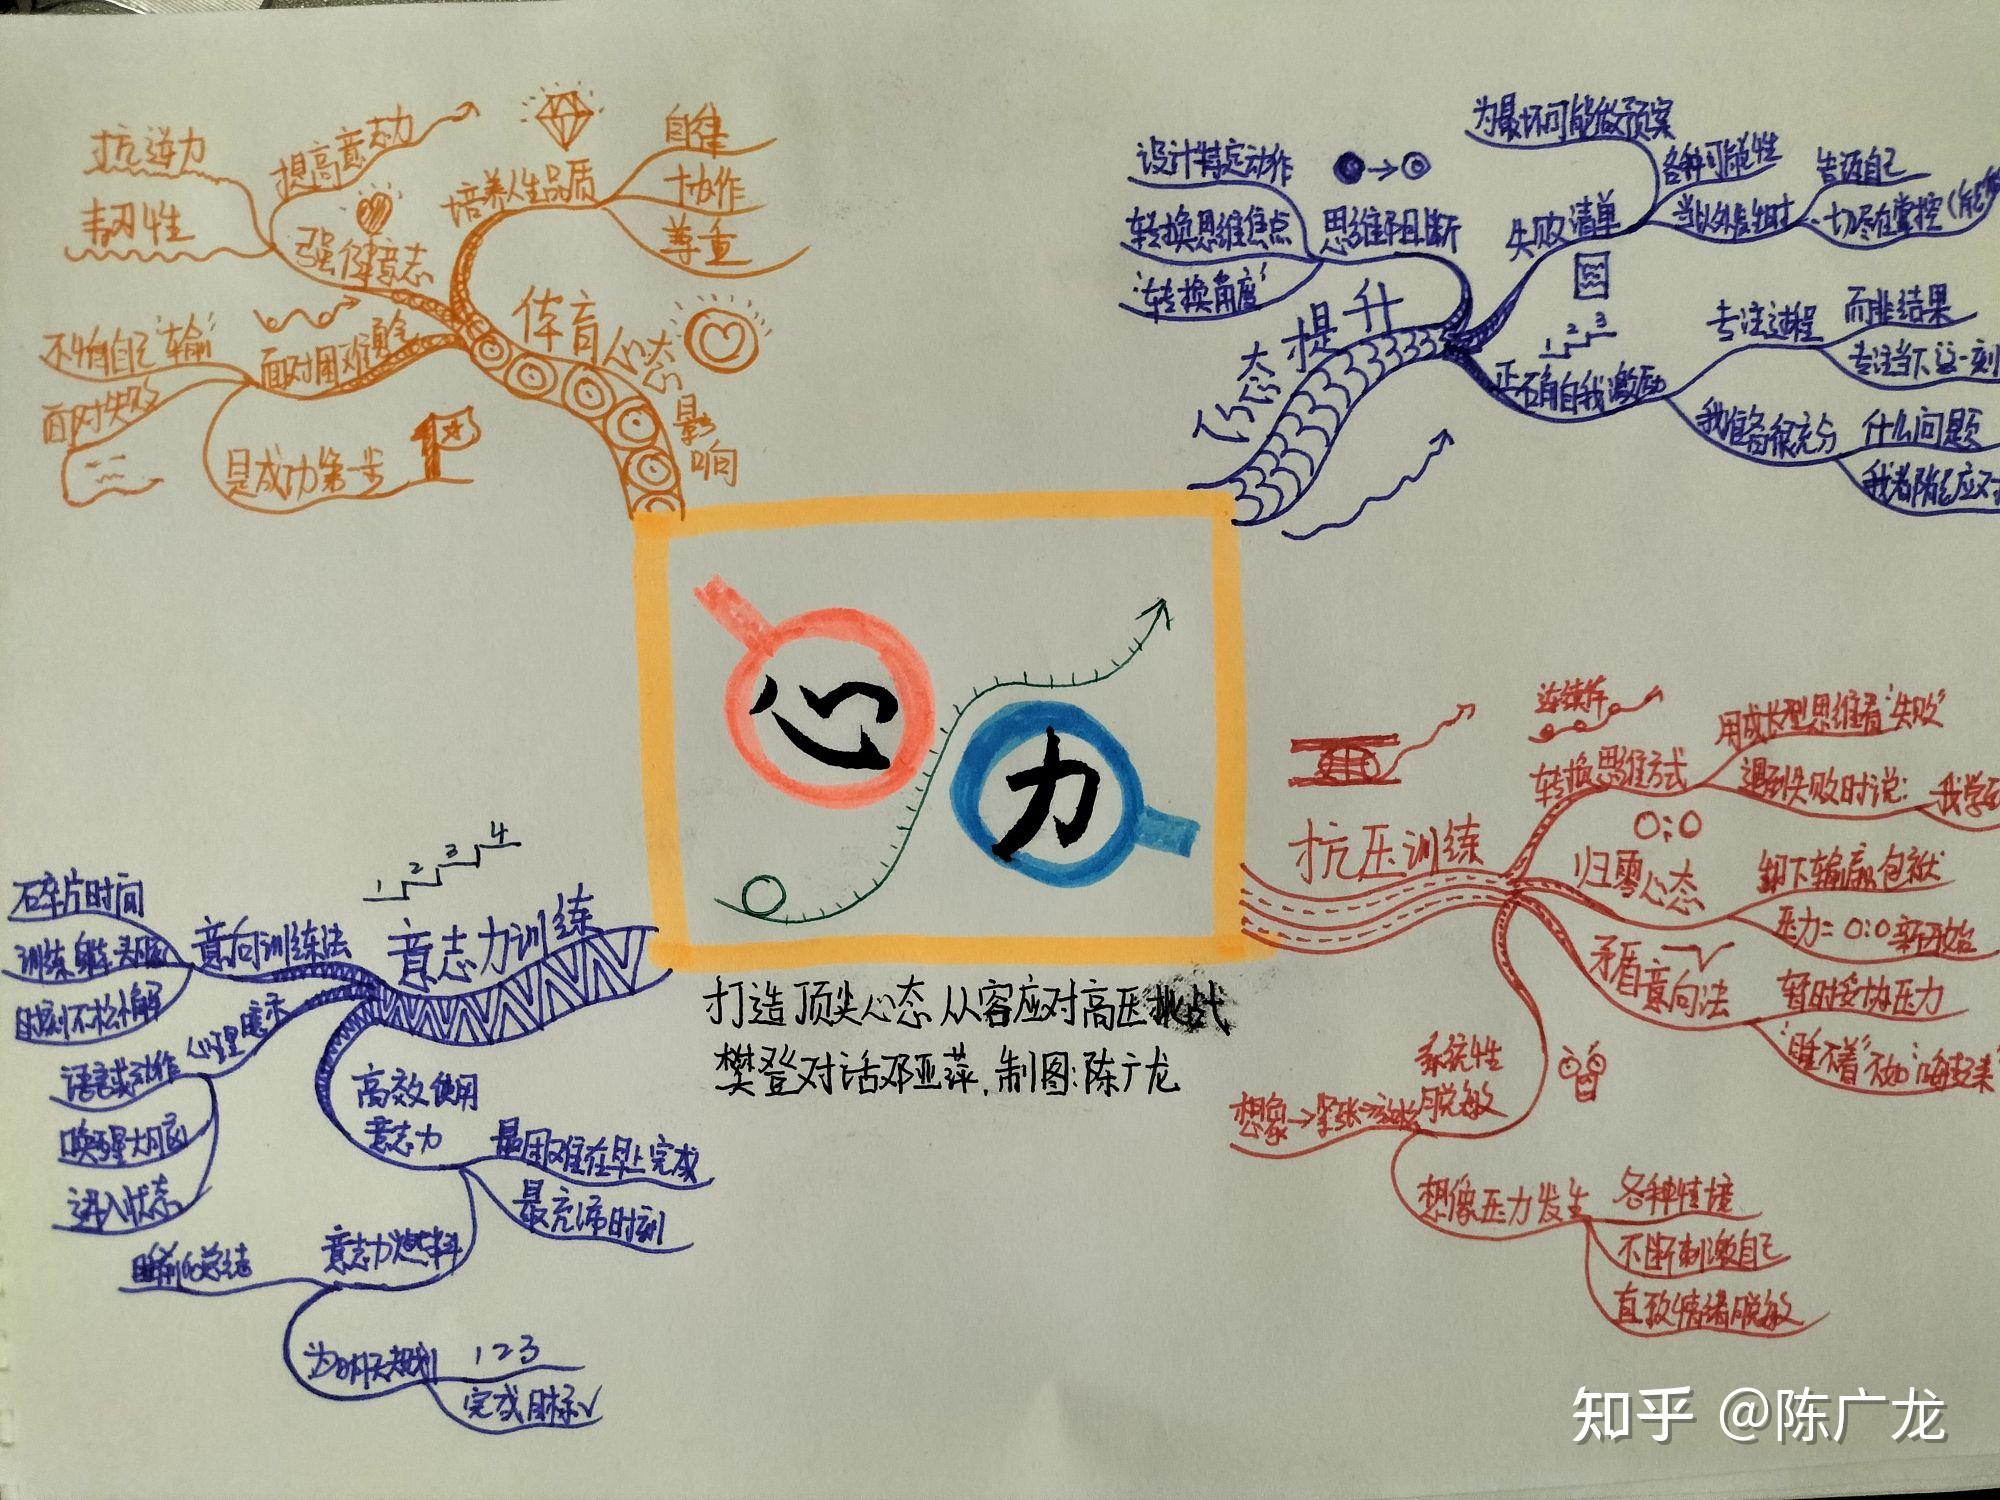 心
力
打造顶尖心态从容应对高压挑战
樊登对话邓亚萍.制图:陈广龙
心态提升
思维阻断
设计特定动作
转换思维焦点
"转换角度"
失败清单
为最坏可能做预案
各种可能性
当以外发生时
告诉自己
一切尽在掌控
1 2 3
正确自我激励
专注过程
而非结果
专注当下这一刻
我准备很充分
什么问题
我都能应对
抗压训练
连续作
转换思维方式
用成长型思维看"失败"
遇到失败时说:
我学到
0:0
归零心态
卸下输赢包袱
压力=0:0新开始
矛盾意向法
暂时妥协压力
"睡不着"不如"嗨起来"
系统性
脱敏
想象→紧张→放松
想像压力发生
各种情境
不断刺激自己
直致情绪脱敏
意志力训练
1 2 3 4
意向训练法
碎片时间
训练
时刻不松懈
心理暗示
语言或动作
唤醒大脑
进入状态
高效使用
意志力
最困难在早上完成
最充沛时刻
意志力燃料
睡前总结
为明天规划
1 2 3
完成目标√
体育心态影响
培养人生品质
自律
协作
尊重
强健意志
提高意志力
抗逆力
韧性
面对困难
不怕自己"输"
面对失败
是成功第一步
知乎 @陈广龙